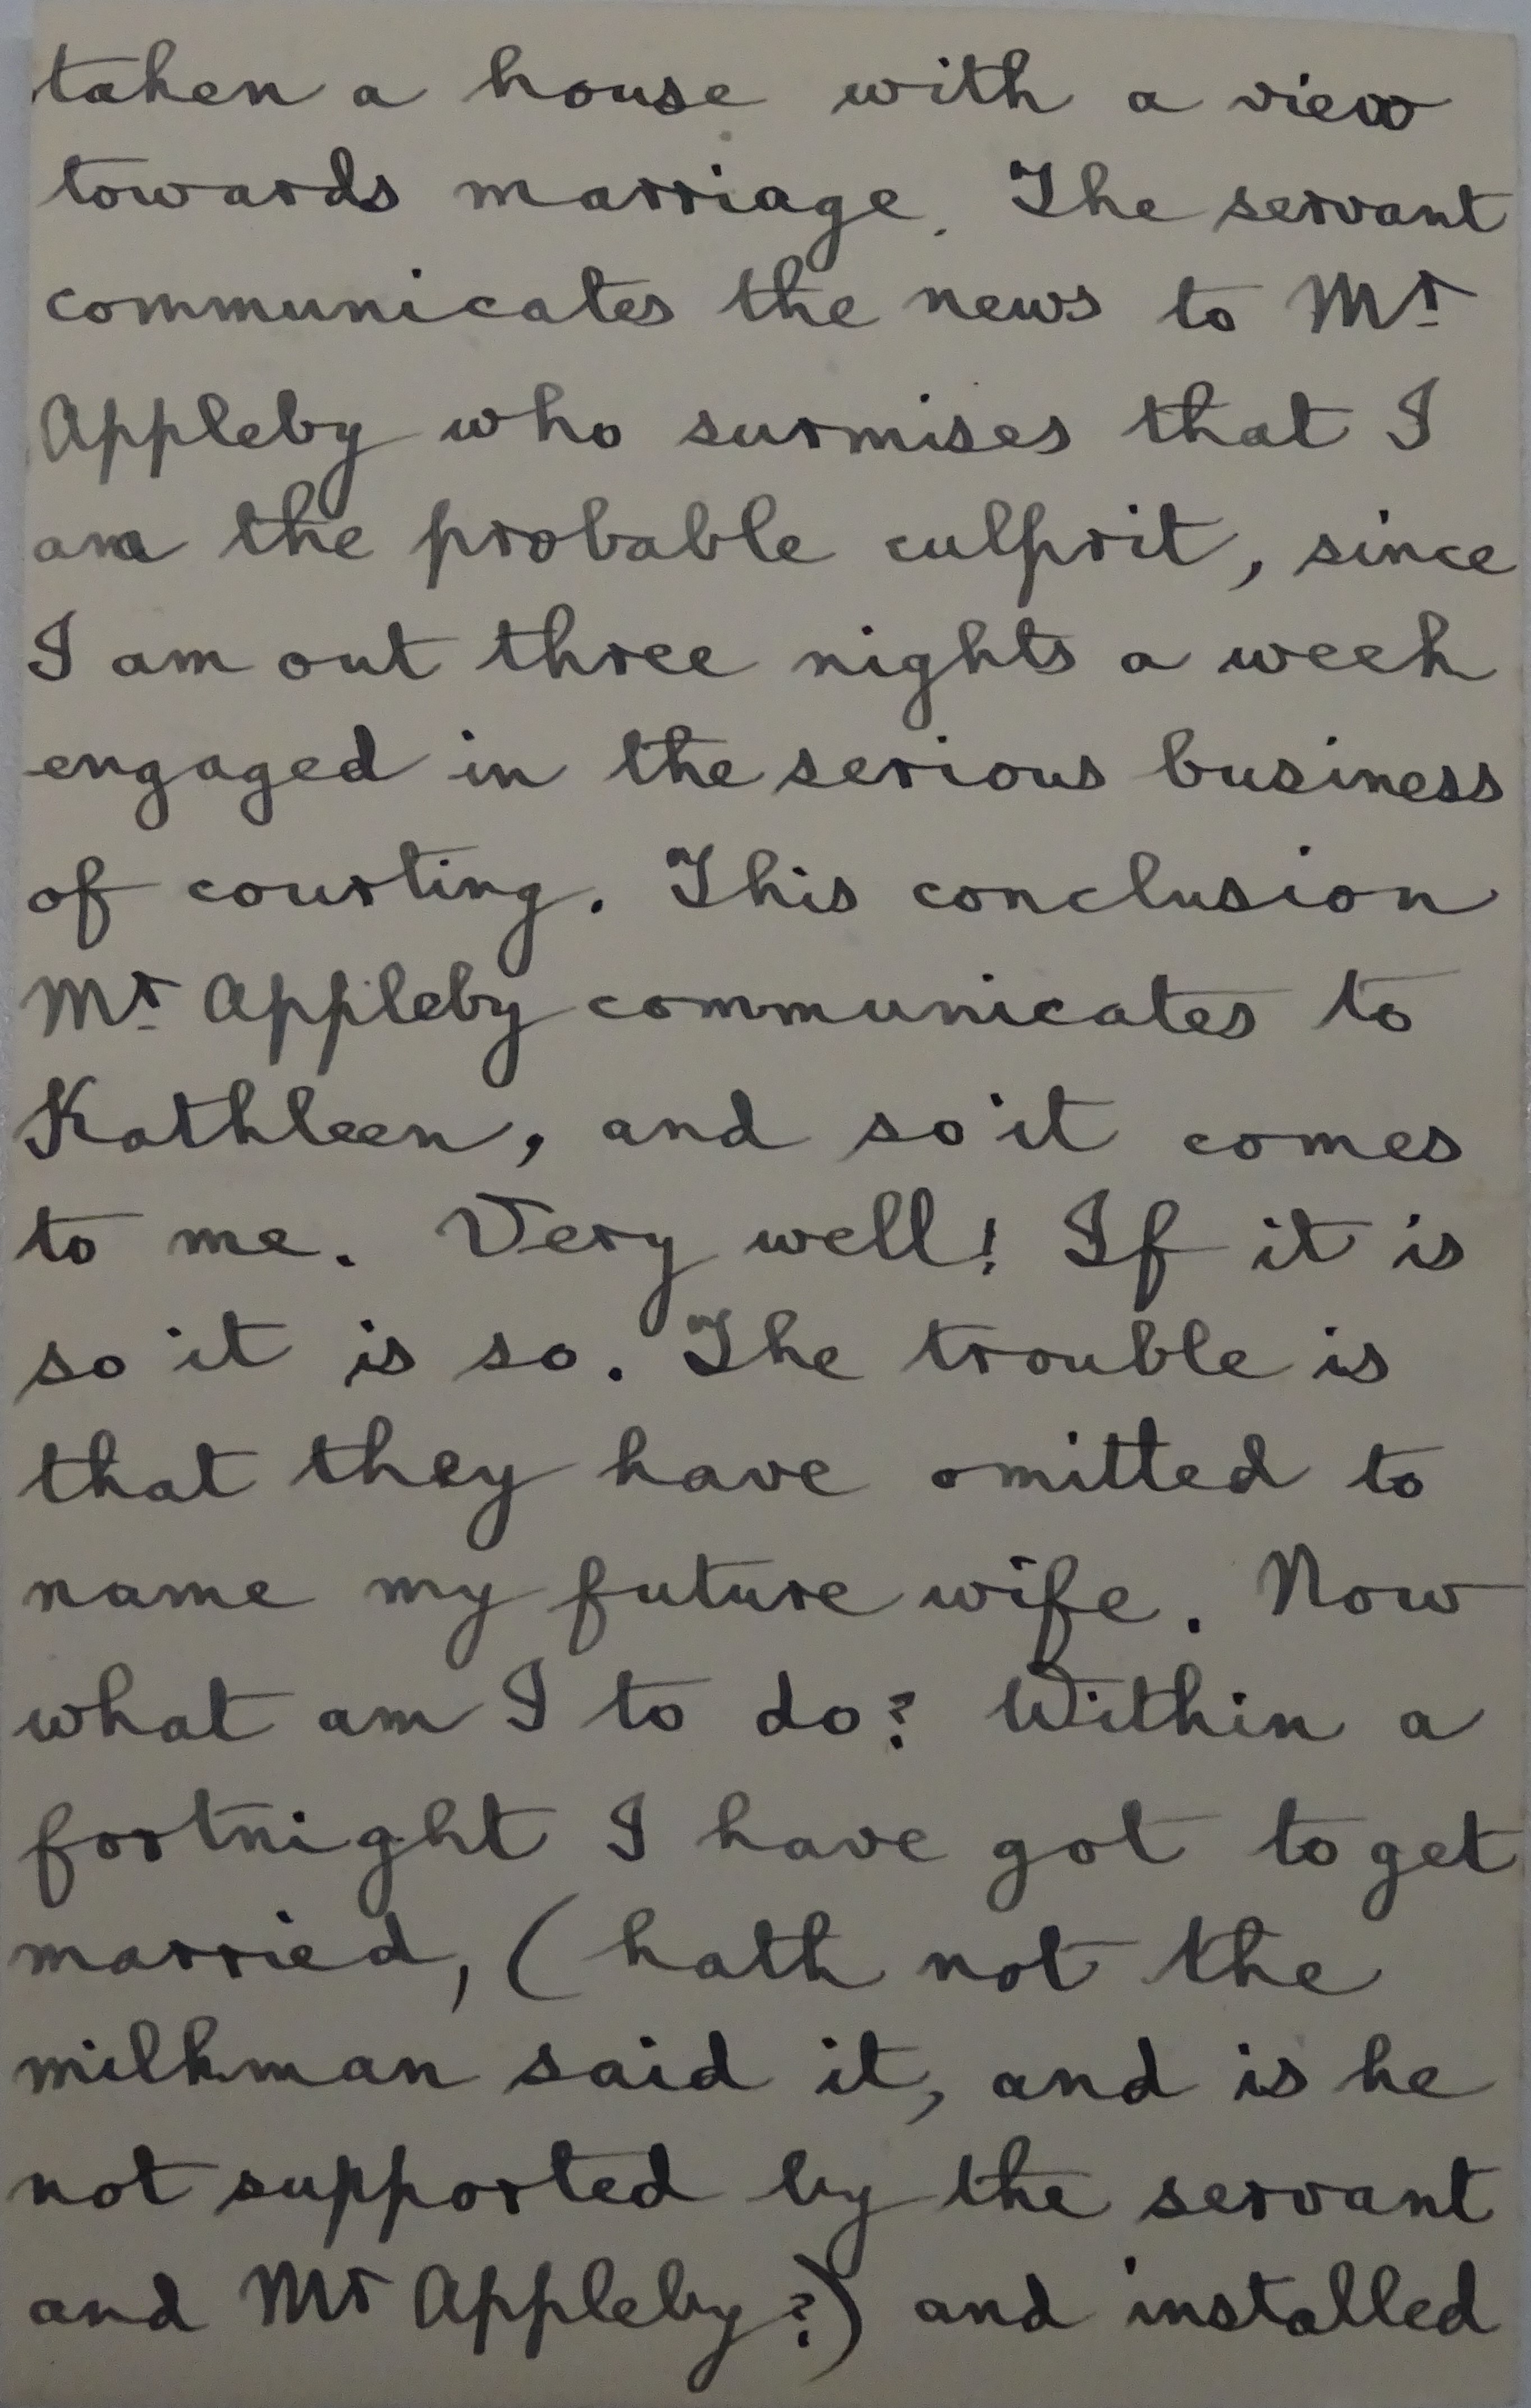 taken a house with a view
towards marriage. The servant
communicates the news to Mr
Appleby who surmises that I
am the probable culprit, since
I am out three nights a week
engaged in the serious business
of courting. This conclusion
Mr Appleby communicates to
Kathleen, and so it comes
to me. Very well! If it is
so it is so. The trouble is
that they have omitted to
name my future wife. Now
what am I to do? Within a
fortnight I have got to get
married, (hath not the
milkman said it, and is he
not supported by the servant
and Mr Appleby?) and installed